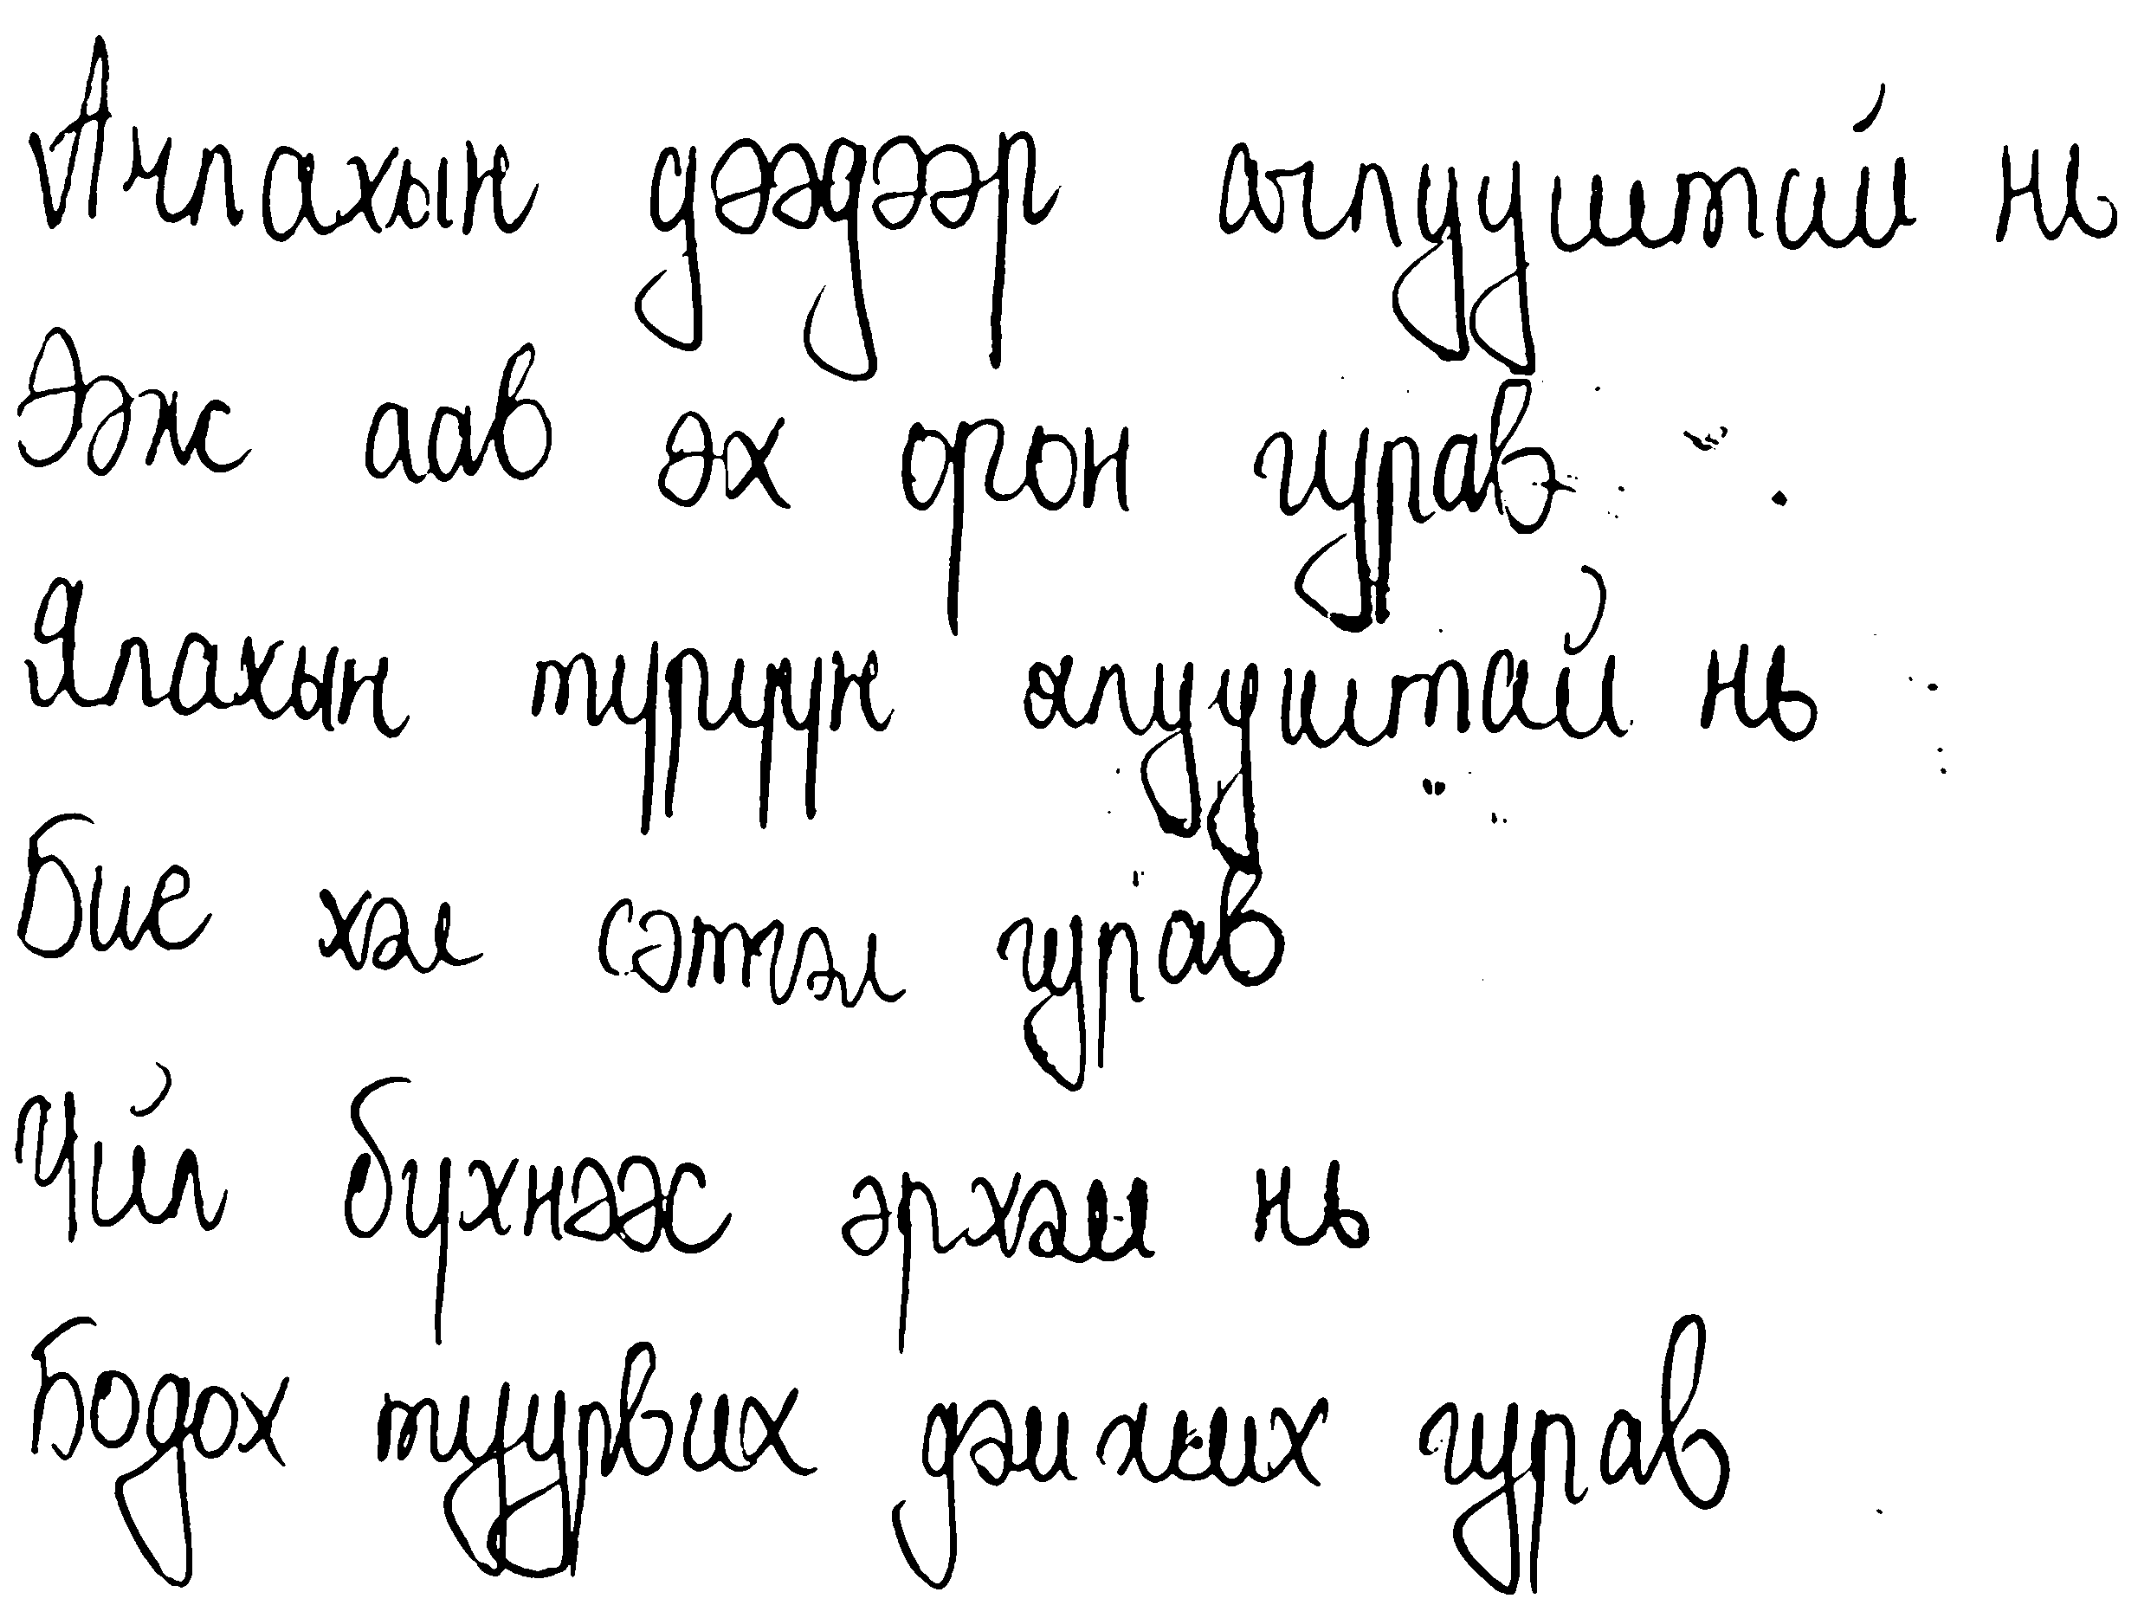 Ачлахын дээдээр ачлууштай нь
Ээж аав эх орон гурав
Ялахын түрүүн ялууштай нь
Бие хэл сэтгэл гурав
Үйл бүхнээс эрхэм нь
Бодох туурвих дэмжих гурав